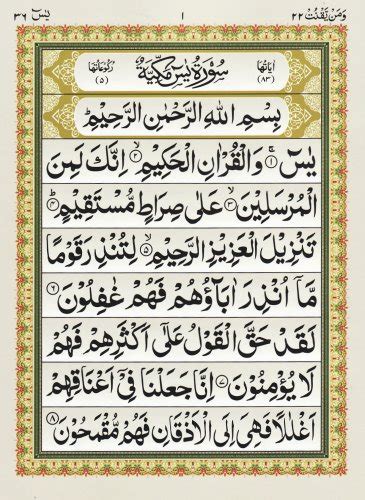 وَمَنْ يَّقْنُتْ ٢٢ ١ يٰسٓ ٣٦
اٰيَاتُهَا (٨٣) سُوْرَةُ يٰسٓ مَكِّيَّةٌ رُكُوْعَاتُهَا (٥)
بِسْمِ اللهِ الرَّحْمٰنِ الرَّحِيْمِ
يٰسٓ ۚ﴿١﴾ وَالْقُرْاٰنِ الْحَكِيْمِ ۙ﴿٢﴾ اِنَّكَ لَمِنَ
الْمُرْسَلِيْنَ ۙ﴿٣﴾ عَلٰى صِرَاطٍ مُّسْتَقِيْمٍ ؕ﴿٤﴾
تَنْزِيْلَ الْعَزِيْزِ الرَّحِيْمِ ۙ﴿٥﴾ لِتُنْذِرَ قَوْمًا
مَّاۤ اُنْذِرَ اٰبَآؤُهُمْ فَهُمْ غٰفِلُوْنَ ﴿٦﴾
لَقَدْ حَقَّ الْقَوْلُ عَلٰٓى اَكْثَرِهِمْ فَهُمْ
لَا يُؤْمِنُوْنَ ﴿٧﴾ اِنَّا جَعَلْنَا فِيْۤ اَعْنَاقِهِمْ
اَغْلٰلًا فَهِيَ اِلَى الْاَذْقَانِ فَهُمْ مُّقْمَحُوْنَ ﴿٨﴾